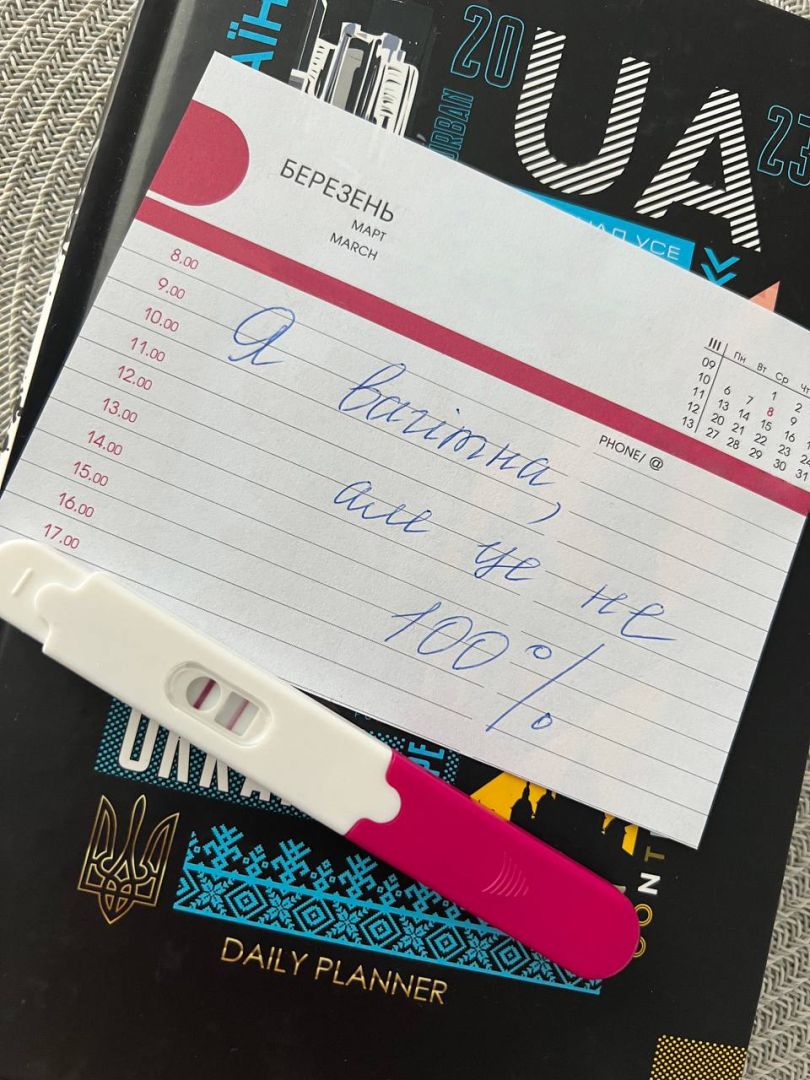 20
UA
23
URBAN
БЕРЕЗЕНЬ
МАРТ
MARCH
8.00
9.00
10.00
11.00
12.00
13.00
14.00
15.00
16.00
17.00
III Пн Вт Ср Чт
09 1 2
10 6 7 8 9
11 13 14 15 16
12 20 21 22 23
13 27 28 29 30 31
PHONE/ @
Я вагітна,
але це не
100%
DAILY PLANNER